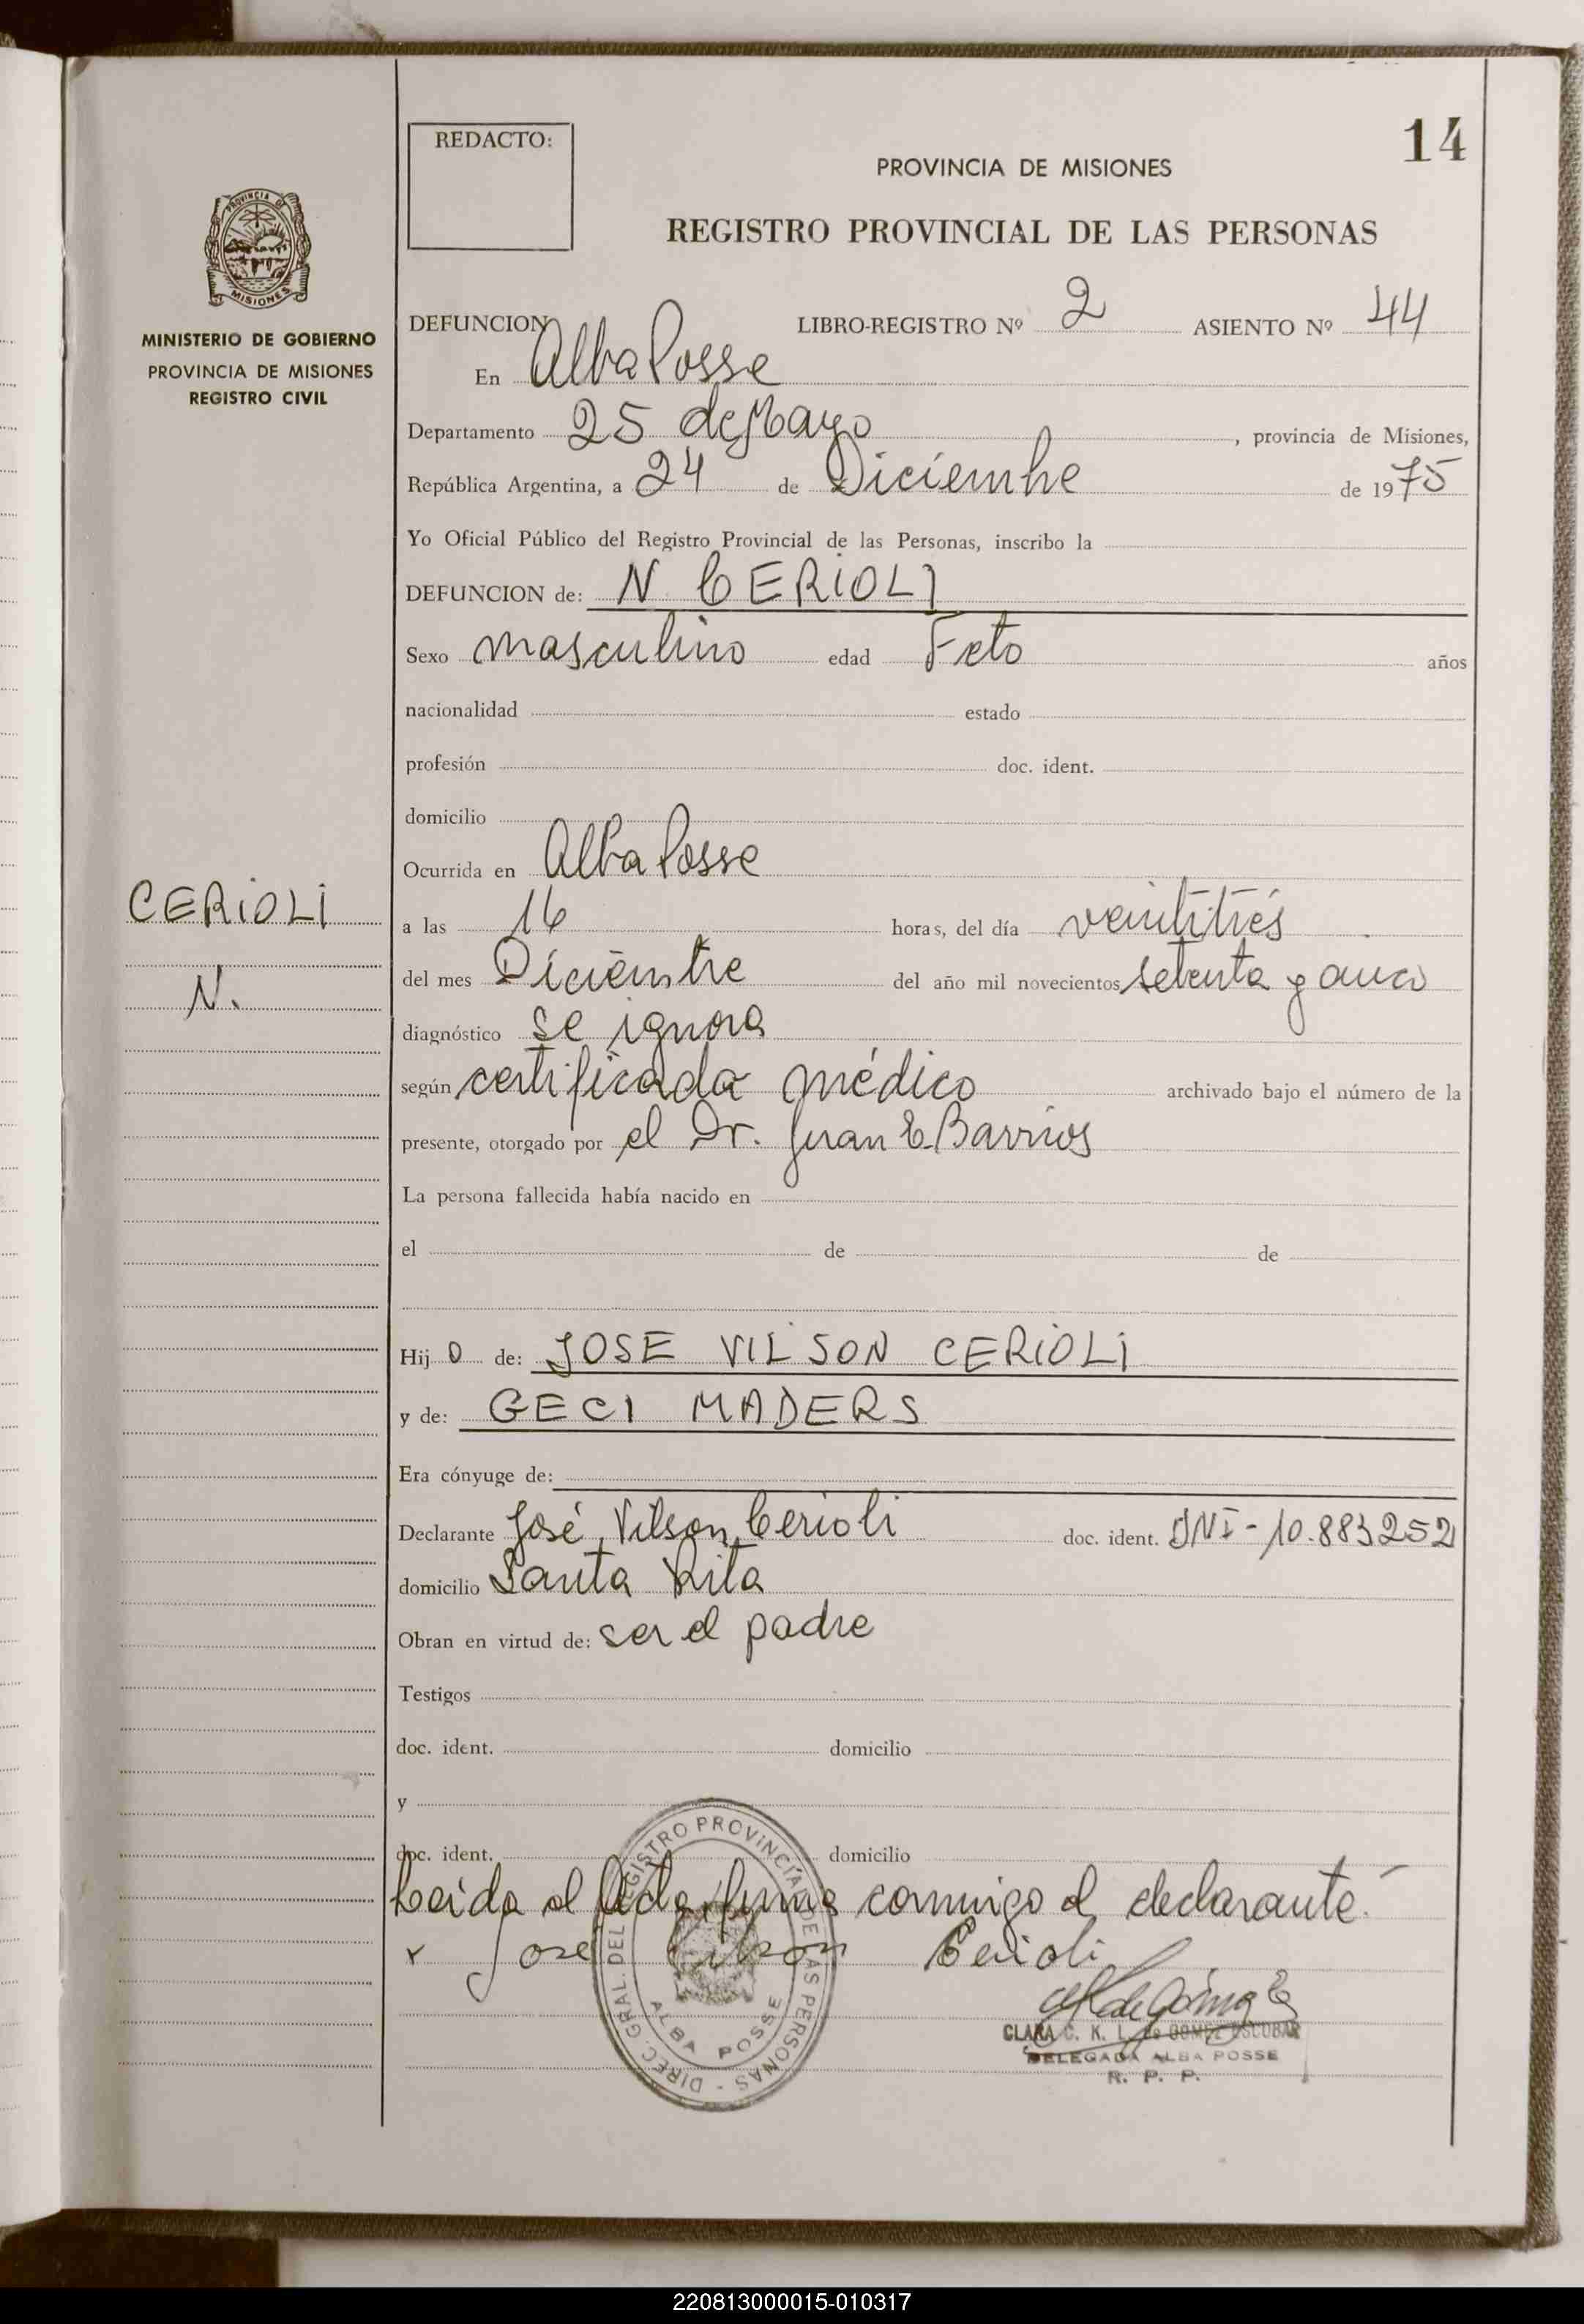 14
REDACTO:
PROVINCIA DE MISIONES
REGISTRO PROVINCIAL DE LAS PERSONAS
PROVINCIA DE
MISIONES
MINISTERIO DE GOBIERNO
PROVINCIA DE MISIONES
REGISTRO CIVIL
DEFUNCION LIBRO-REGISTRO Nº 2 ASIENTO Nº 44
En Alba Posse
Departamento 25 de Mayo, provincia de Misiones,
República Argentina, a 24 de Diciembre de 1975
Yo Oficial Público del Registro Provincial de las Personas, inscribo la
DEFUNCION de: N CERIOLI
Sexo masculino edad Feto años
nacionalidad estado
profesión doc. ident.
domicilio
Ocurrida en Alba Posse
CERIOLI
N.
a las 16 horas, del día veintitrés
del mes Diciembre del año mil novecientos setenta y cinco
diagnóstico se ignora
según certificado médico archivado bajo el número de la
presente, otorgado por el Dr. Juan E. Barrios
La persona fallecida había nacido en
el de de
Hijo de: JOSE VILSON CERIOLI
y de: GECI MADERS
Era cónyuge de:
Declarante José Vilson Cerioli doc. ident. DNI-10.883252
domicilio Santa Rita
Obran en virtud de: ser el padre
Testigos
doc. ident. domicilio
y
doc. ident. domicilio
Leida el Acta, firma conmigo el declarante.
x Jose Vilson Cerioli
DIREC. GRAL. DEL REGISTRO PROVINCIAL DE LAS PERSONAS -
ALBA POSSE
CLARA C. K. L. de GOMEZ ESCOBAR
DELEGADA ALBA POSSE
R. P. P.
220813000015-010317